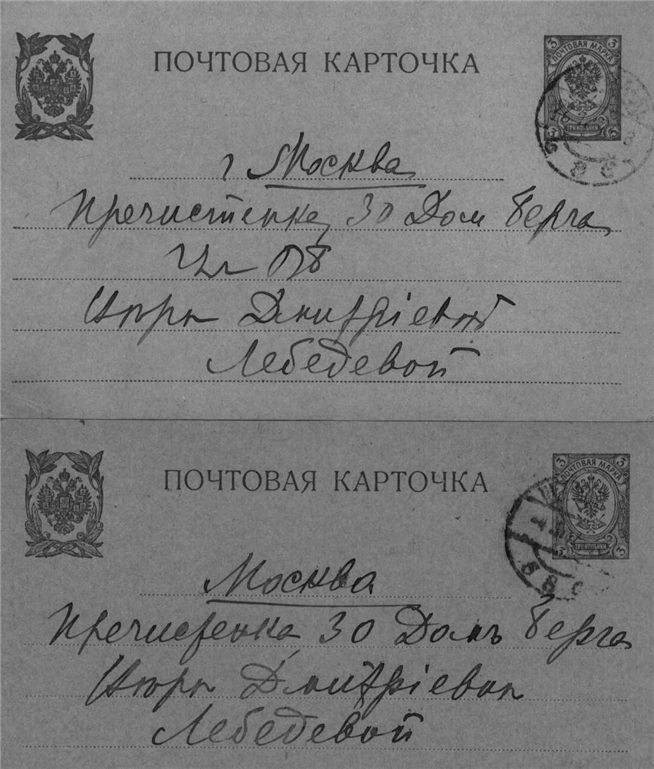 ПОЧТОВАЯ КАРТОЧКА
3 3
ПОЧТОВАЯ МАРКА
г Москва
Пречистенка, 30 Дом Берга
Дмитріевой
Лебедевой
ПОЧТОВАЯ КАРТОЧКА
3 3
ПОЧТОВАЯ МАРКА
3 3
Москва
Пречистенка, 30 Домъ Берга
Дмитріевой
Лебедевой